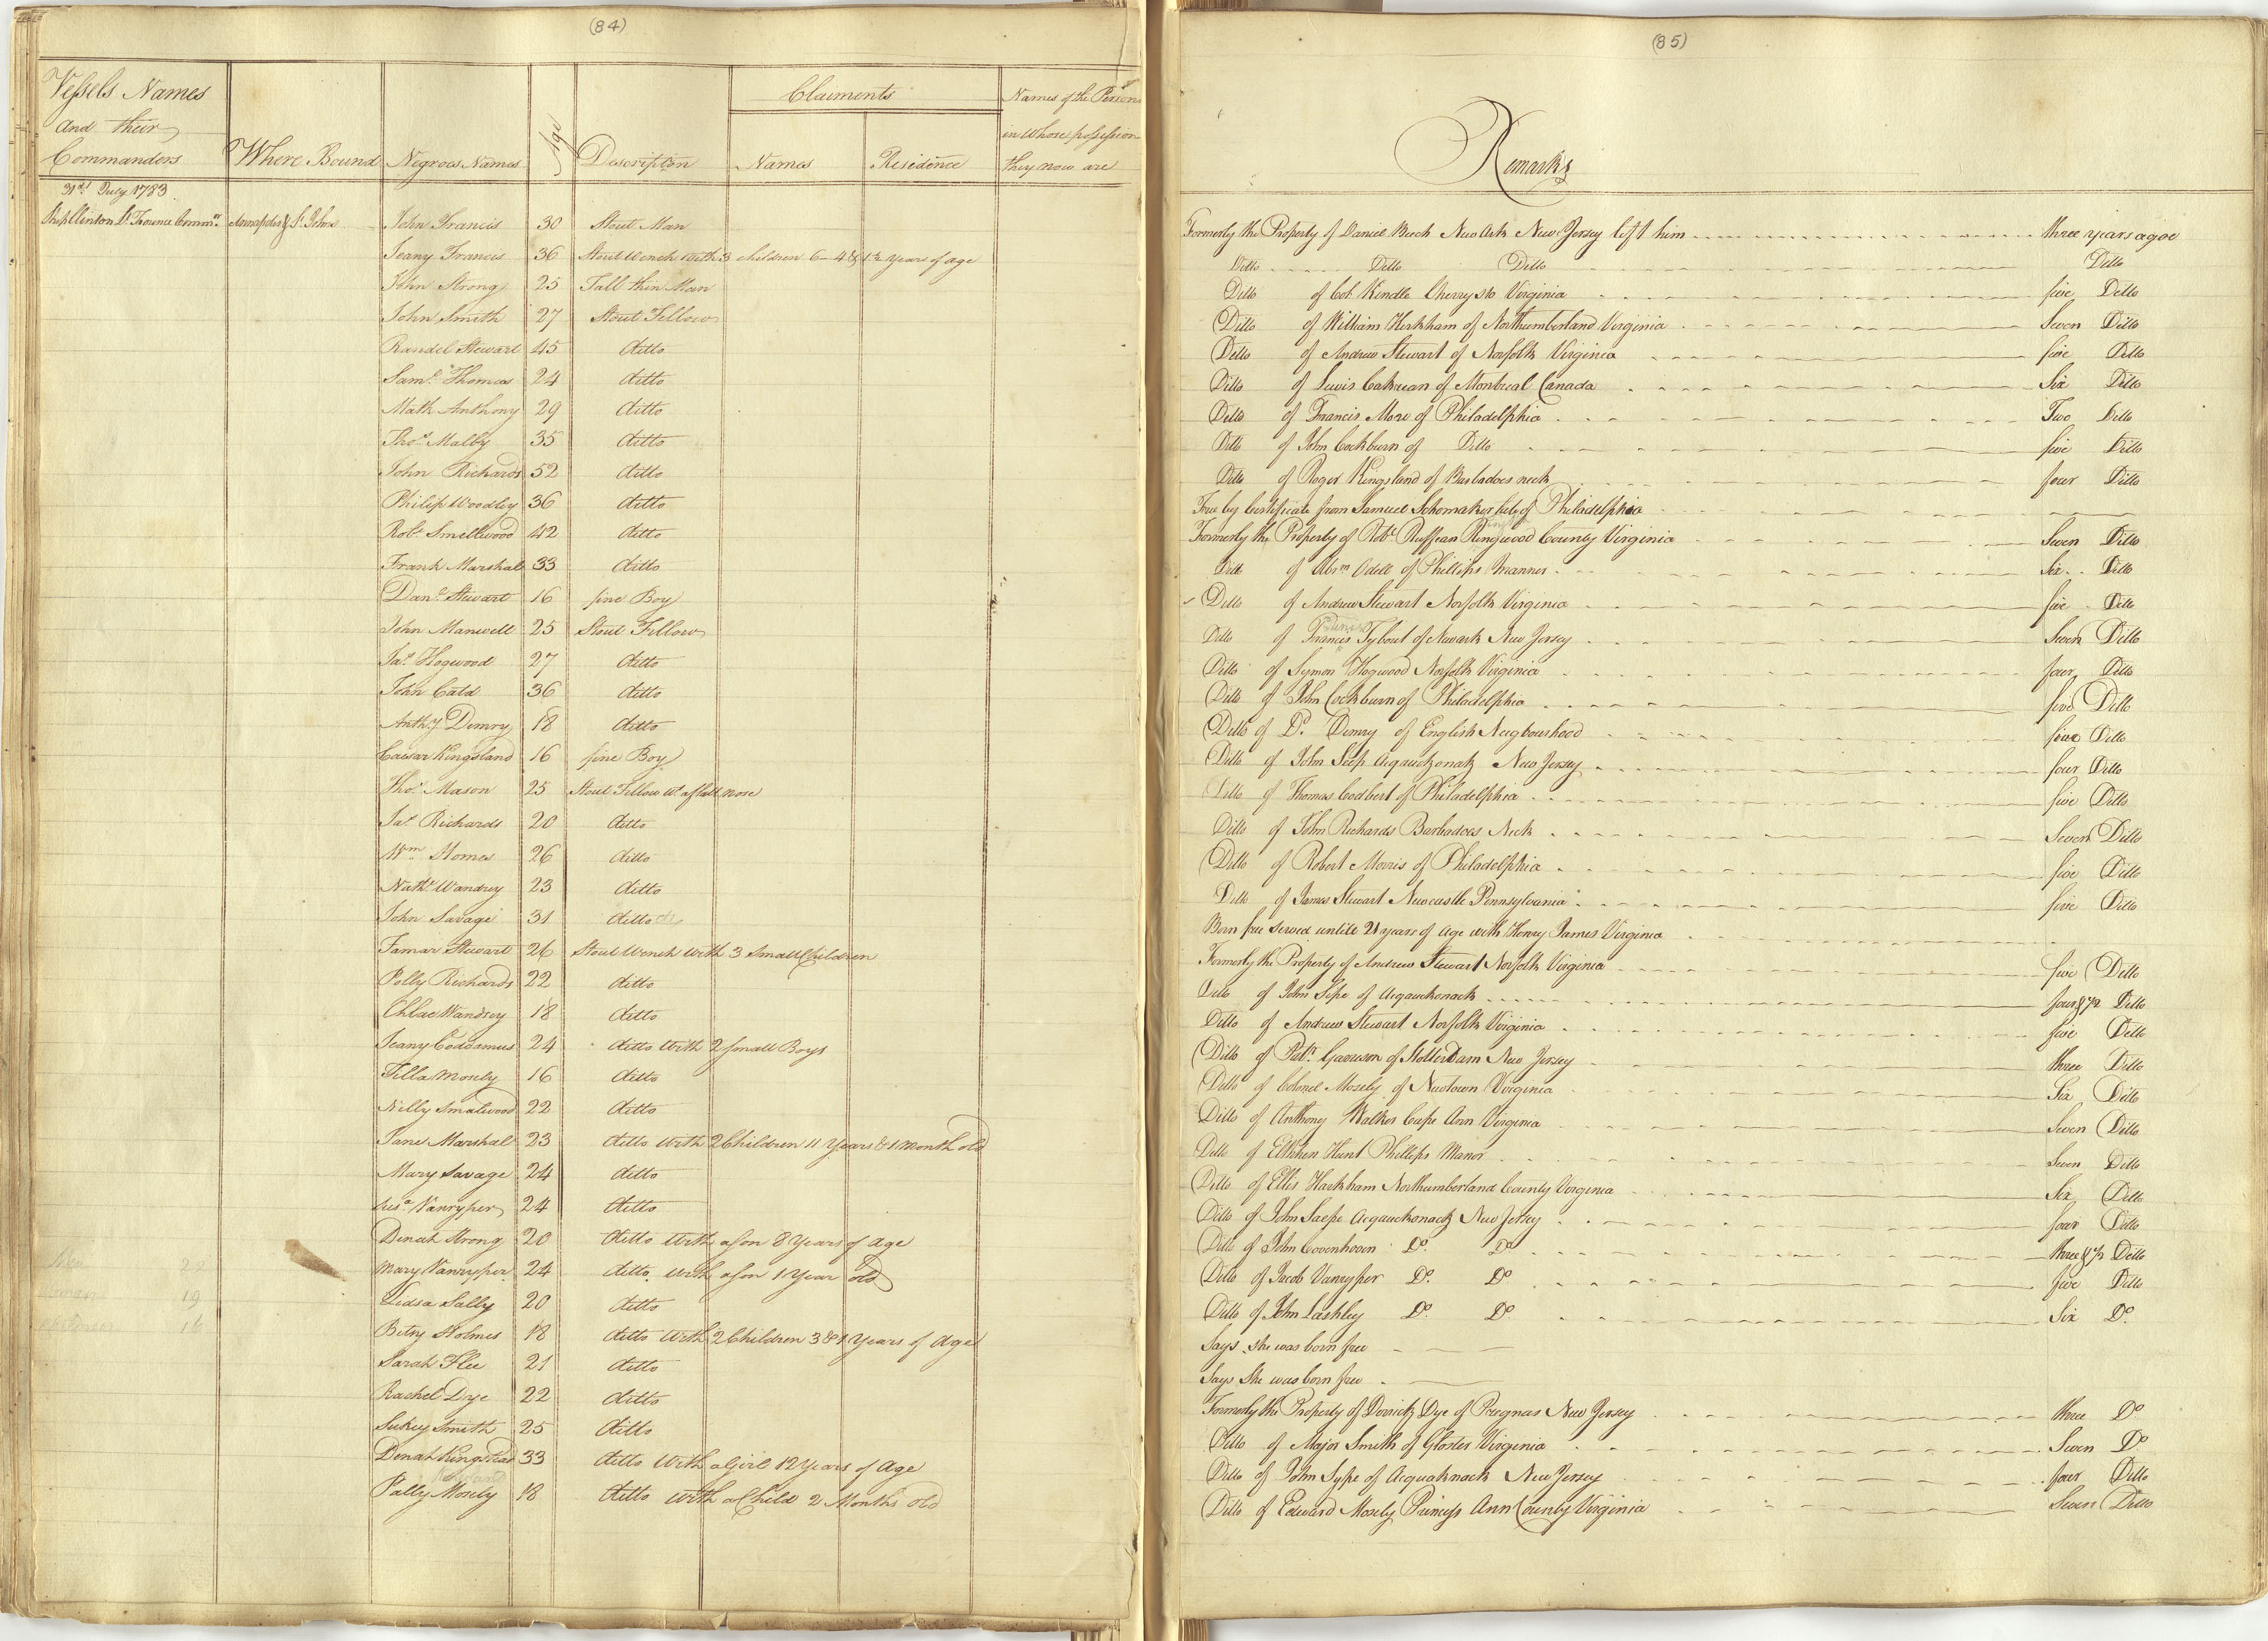 (84)
Vessels Names and their Commanders
Where Bound
Negroes Names
Age
Description
Claiments
Names
Residence
Names of the Persons in whose possession they now are
31st July 1783
Ship Clinton Lt Trounce Commr Annapolis & St Johns John Francis 30 Stout Man
Jeany Francis 36 Stout Wench with 3 children 6 - 4 & 1½ years of age
John Strong 25 Tall thin Man
John Smith 27 Stout Fellow
Randel Stewart 45 ditto
Saml Thomas 24 ditto
Math Anthony 29 ditto
Thos Malby 35 ditto
John Richards 52 ditto
Philip Woodley 36 ditto
Robt Smellwood 42 ditto
Frank Marshal 33 ditto
Danl Stewart 16 fine Boy
John Manwell 25 Stout Fellow
Jas Hogwood 27 ditto
John Cald 36 ditto
Anthy Demry 18 ditto
Caesar Kingsland 16 fine Boy
Thos Mason 25 Stout Fellow Wt a flatt nose
Jas Richards 20 ditto
Wm Homes 26 ditto
Nathl Wandrey 23 ditto
John Savage 31 ditto
Tamar Stewart 26 Stout Wench with 3 Small Children
Polly Richards 22 ditto
Chloe Wandsey 18 ditto
Jeany Coddamus 24 ditto with 2 small Boys
Tilla Mosely 16 ditto
Nelly Smalwood 22 ditto
Jane Marshal 23 ditto with 2 Children 11 Years & 1 Month old
Mary Savage 24 ditto
Vanryper 24 ditto
Dinah Strong 20 ditto with a son 8 Years of age
Mary Vanryper 24 ditto with a son 1 Year old
Lidia Sally 20 ditto
Betsy Holmes 18 ditto with 2 Children 3 & 1 Years of age
Sarah Flee 21 ditto
Rachel Dye 22 ditto
Sukey Smith 25 ditto
Dinah 33 ditto with a Girl 12 Years of Age
Pally Mosely 18 ditto with a Child 2 Months old
Men 22
Women 19
Children 16
(85)
Remarks
Formerly the Property of Daniel Beech New Ark New Jersey left him three years agoe
Ditto Ditto Ditto Ditto
Ditto of Col Kindle Cherrysto Virginia five Ditto
Ditto of William Herkham of Northumberland Virginia Seven Ditto
Ditto of Andrew Stewart of Norfolk Virginia five Ditto
Ditto of Lewis of Montreal Canada Six Ditto
Ditto of Francis More of Philadelphia Two Ditto
Ditto of John Cockburn of Ditto five Ditto
Ditto of Roger Kingsland of Barbadoes neck four Ditto
Free by Certificate from Samuel Schomaker late of Philadelphia
Formerly the Property of Robt Ruffean Ringwood County Virginia Seven Ditto
Ditto of Abrm Odell of Phillips Manner Six Ditto
Ditto of Andrew Stewart Norfolk Virginia five Ditto
Ditto of Francis Tybout of Newark New Jersey Seven Ditto
Ditto of Symon Hogwood Norfolk Virginia four Ditto
Ditto of John Cockburn of Philadelphia five Ditto
Ditto of Dr. Demry of English Neigbourhood four Ditto
Ditto of John Seep Acqauckonack New Jersey four Ditto
Ditto of Thomas Codbert of Philadelphia five Ditto
Ditto of John Richards Barbadoes Neck Seven Ditto
Ditto of Robert Morris of Philadelphia five Ditto
Ditto of James Stewart Newcastle Pennsylvania five Ditto
Born free served untill 21 years of age with Henry James Virginia
Formerly the Property of Andrew Stewart Norfolk Virginia five Ditto
Ditto of John Sepe of Acqauckonack four & ½ Ditto
Ditto of Andrew Stewart Norfolk Virginia five Ditto
Ditto of Garrison of Slotterdam New Jersey three Ditto
Ditto of Colonel Mosely of Newtown Virginia Six Ditto
Ditto of Anthony Walker Cape Ann Virginia Seven Ditto
Ditto of Hunt Phillips Manor Seven Ditto
Ditto of Ellis Harkham Northumberland County Virginia Six Ditto
Ditto of John Saepe Acqauckonack New Jersey four Ditto
Ditto of John Covenhoven Do. Do. three & ½ Ditto
Ditto of Jacob Vanryper Do. Do. five Ditto
Ditto of John Lashley Do. Do. Six Do.
Says she was born free
Says she was born free
Formerly the Property of Derrick Dye of Pregnas New Jersey three Do
Ditto of Major Smith of Gloster Virginia Seven Do
Ditto of John Sype of Acquaknack New Jersey four Ditto
Ditto of Edward Mosely Princess Ann County Virginia Seven Ditto